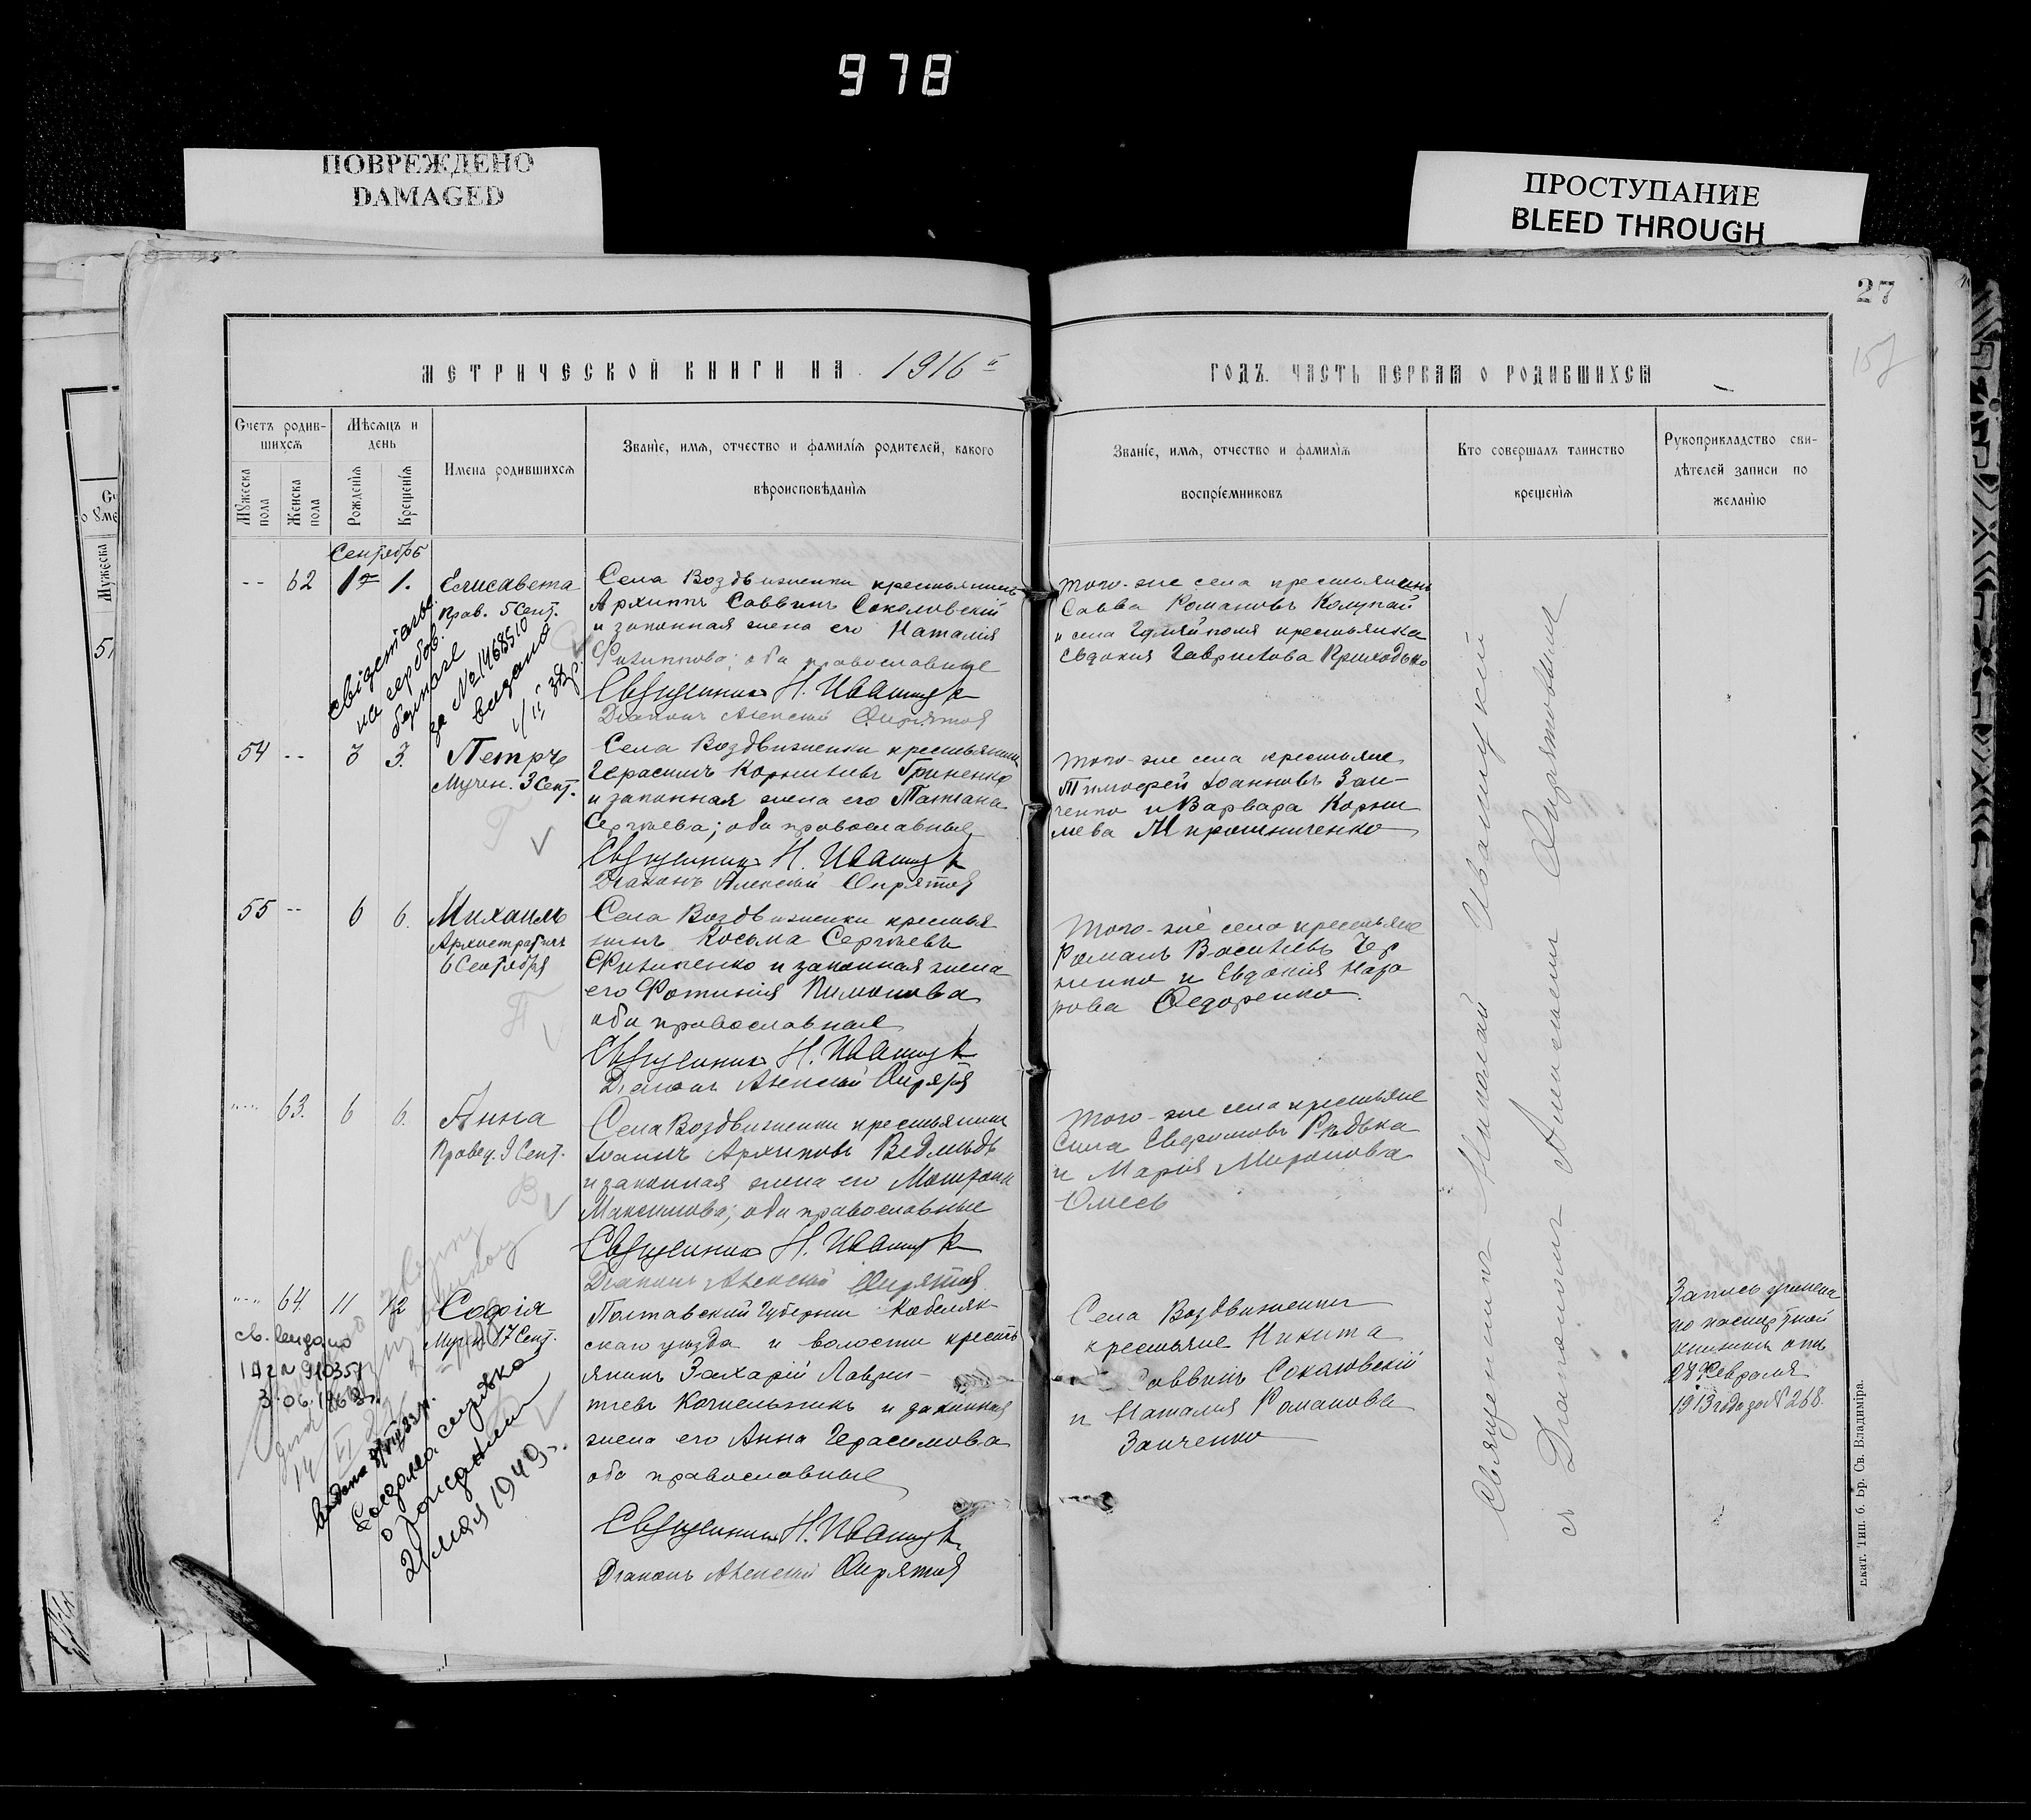 978
ПОВРЕЖДЕНО
DAMAGED
ПРОСТУПАНИЕ
BLEED THROUGH
27
157
МЕТРИЧЕСКОЙ КНИГИ НА 1916 й
ГОДЪ. ЧАСТЬ ПЕРВАЯ О РОДИВШИХСЯ
Счетъ родив-
шихся
Мужеска
пола
Женска
пола
Мѣсяцъ и
день
Рожденія
Крещенія
Имена родившихся
Званіе, имя, отчество и фамилія родителей, какого
вѣроисповѣданія
Званіе, имя, отчество и фамилія
воспріемниковъ
Кто совершалъ таинство
крещенія
Рукоприкладство сви-
дѣтелей записи по
желанію
Сентябрь
62 1 1. Елисавета
Прав. 5 Сент.
Села Воздвиженки крестьянинъ
Архиппъ Саввинъ Соколовскій
и законная жена его Наталія
Филиппова; оба православные
Священникъ Н. Ивашук
Діаконъ Алексѣй Опрятовъ
того-же села крестьянинъ
Савва Романовъ Колупай
и села Гуляйполя крестьянка
Евдокия Гаврилова Приходько
за № 1468510
видано
54 -- 3 3. Петръ
Мучен. 3 Сент.
Села Воздвиженки крестьянинъ
Герасимъ Корнилиевъ Гриненко
и законная жена его Татіана
Сергѣева; оба православные
Священникъ Н. Ивашук
Діаконъ Алексѣй Опрятовъ
того-же села крестьяне
Тимофей Іоанновъ Заи-
ченко и Варвара Корни
лиева Мирошниченко
55 -- 6 6. Михаилъ
Архистратигъ
6 Сентября
Села Воздвиженки крестья
нинъ Косьма Сергѣевъ
Филипенко и законная жена
его Фотинія Пимонова
оба православные
Священникъ Н. Ивашук
Діаконъ Алексѣй Опрятовъ
того-же села крестьяне
Романъ Васильевъ
и Евдокія Наза
рова Федоренко.
63. 6 6. Анна
Правед. 9 Сент.
Села Воздвиженки крестьянинъ
Іоаннъ Архиповъ Ведмѣдь
и законная жена его Матрона
Максимова; оба православные
Священникъ Н. Ивашук
Діаконъ Алексѣй Опрятовъ
того-же села крестьяне
Сила Рѣдька
и Марія Миронова
Омесь
64 11 12 Софія
Мучен. 17 Сент.
Полтавский губерніи Кобеляк-
скаго уѣзда и волости кресть
янинъ Захарій Лаврен-
тіевъ Котельникъ и законная
жена его Анна Герасимова
оба православные
Священникъ Н. Ивашук
Діаконъ Алексѣй Опрятовъ
Села Воздвиженки
крестьяне Никита
Саввинъ Соколовскій
и Наталия Романова
Заиченко
Запись учинена
по паспортной
книжки отъ
27 Февраля
1913 года за № 268.
св. видано
3.06.1963
2 мая 1949 г.
Священникъ Николай Ивашукъ
съ Діакономъ Алексѣемъ Опрятовымъ
Екат. Тип. б. Бр. Св. Владиміра.